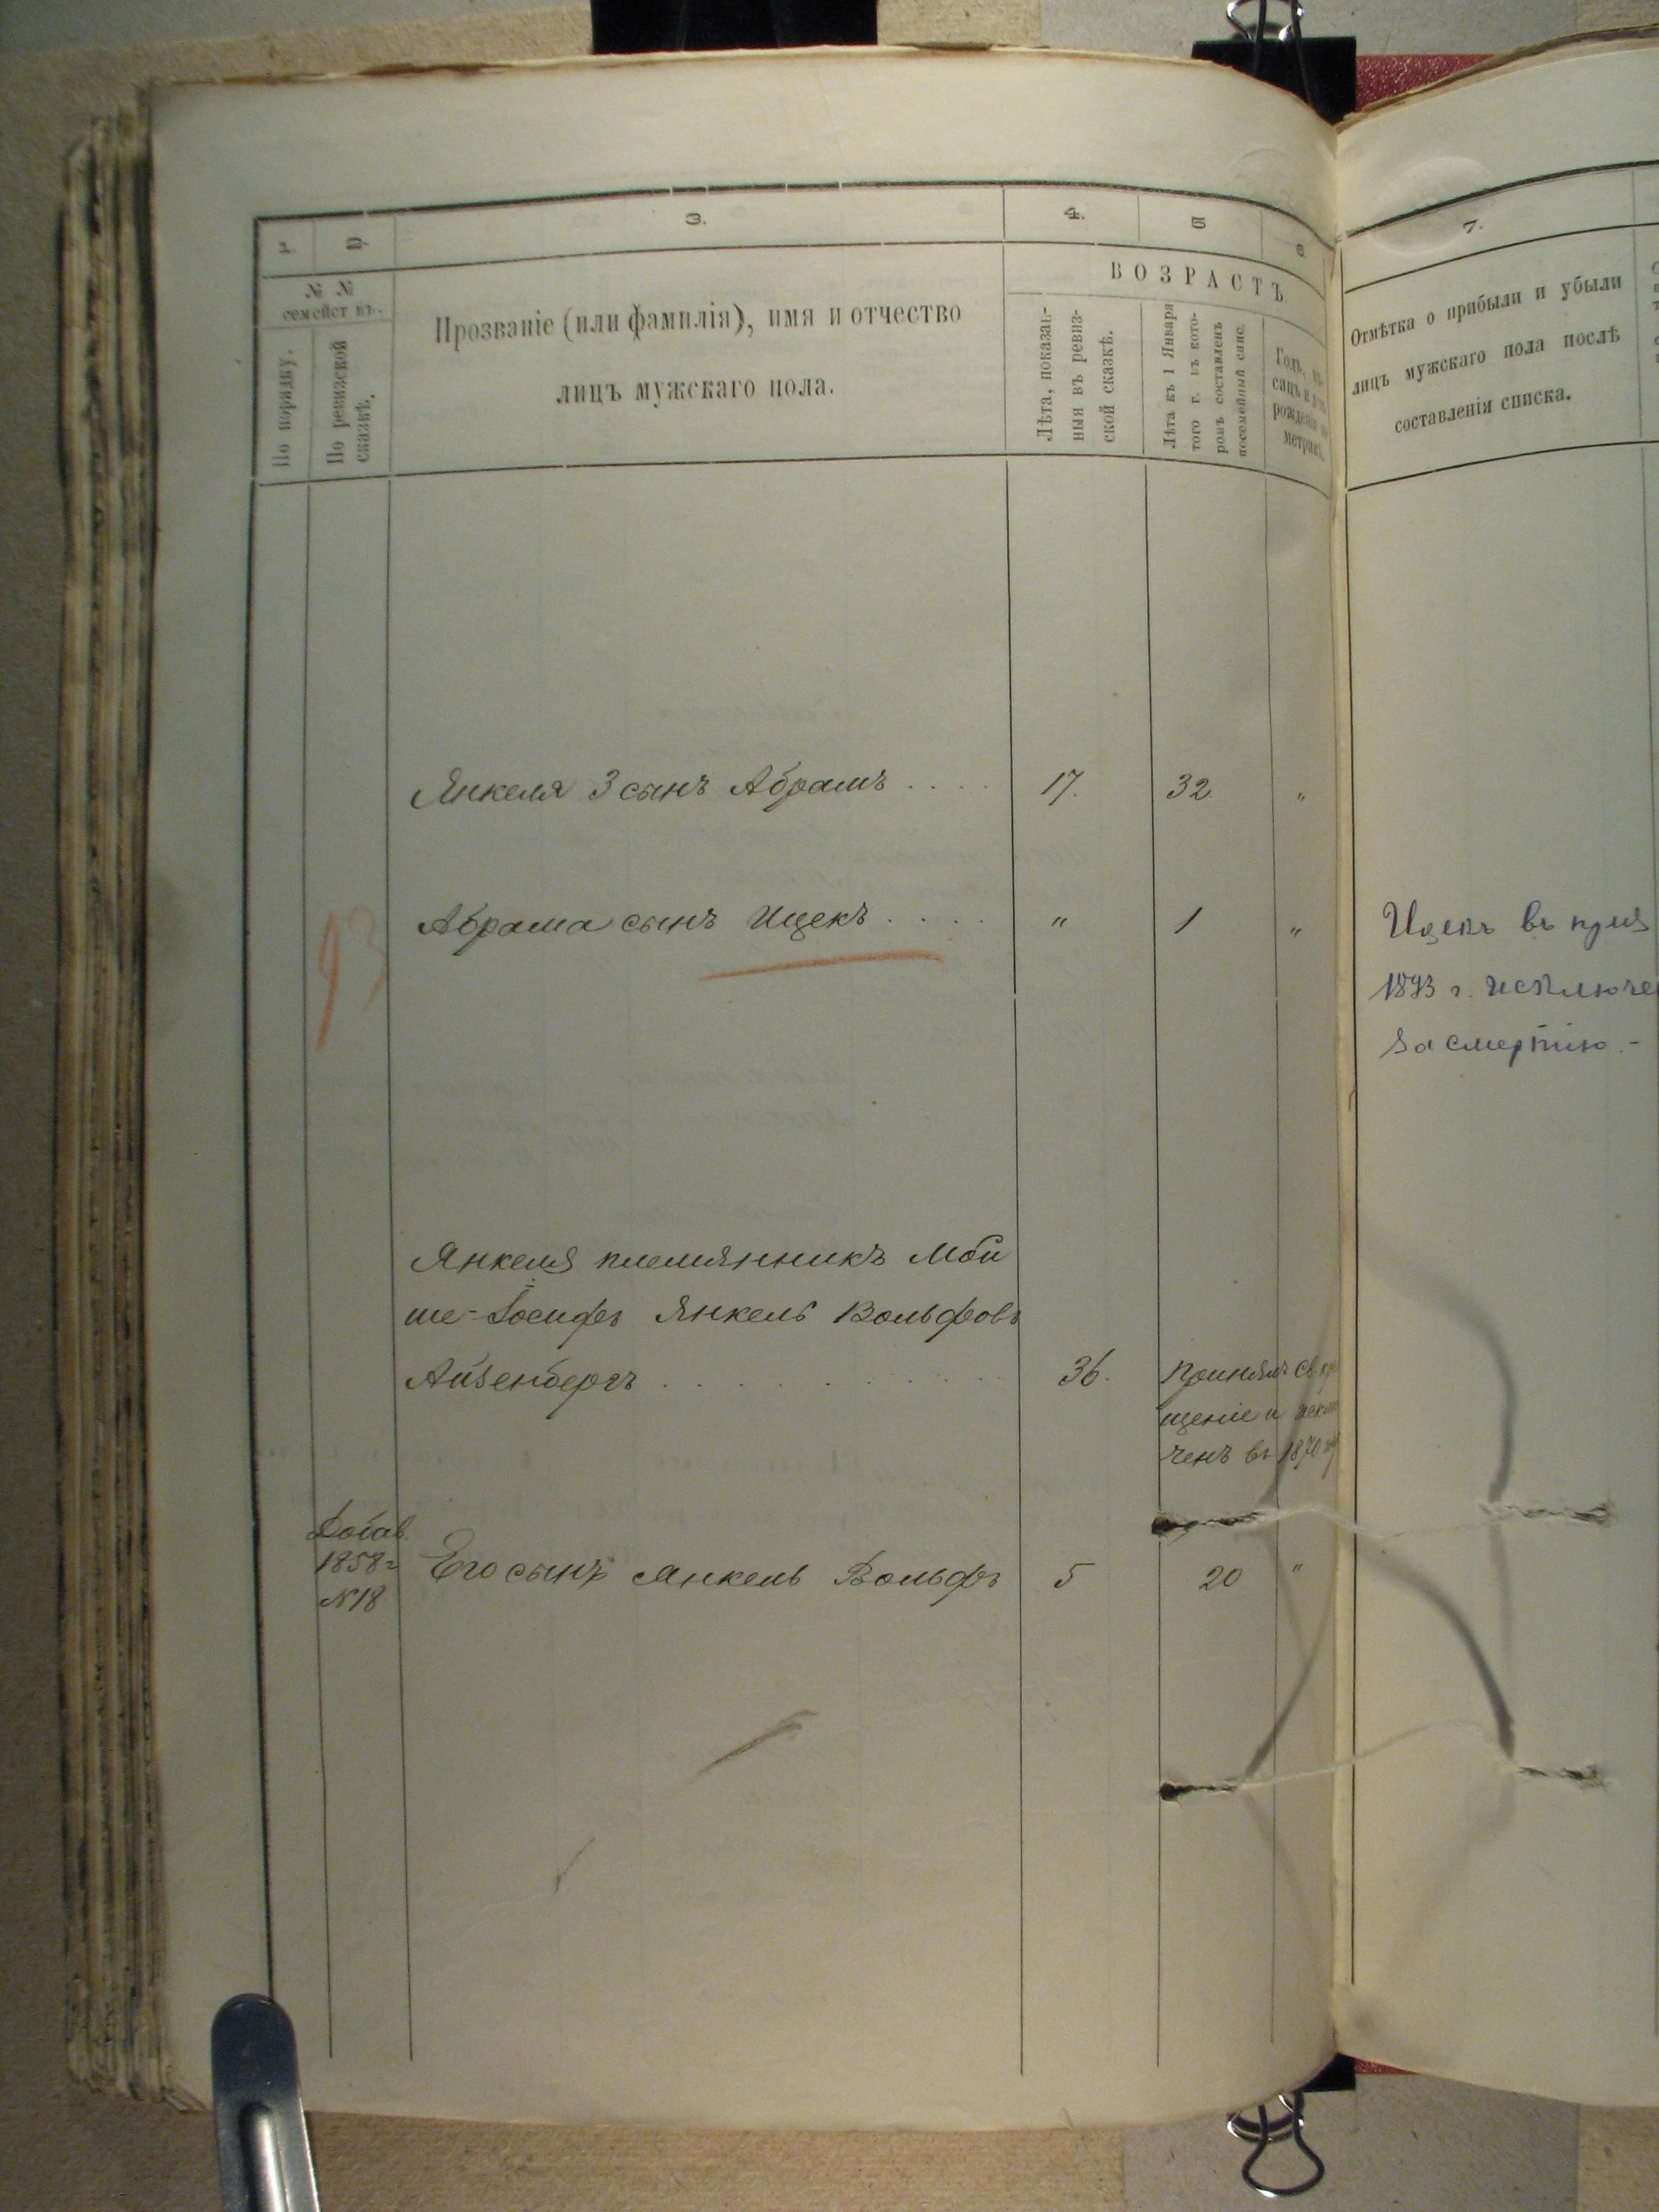 1. 2. 3. 4. 5 6 7.
№ №
семействъ.
По порядку.
По ревизской
сказкѣ.
Прозваніе (или фамилія), имя и отчество
лицъ мужскаго пола.
ВОЗРАСТЪ
Лѣта, показан-
ныя въ ревиз-
ской сказкѣ.
Лѣта къ 1 Января
того г. въ кото-
ромъ составленъ
посемейный спис.
Годъ, мѣ-
сяцъ и
рожденія
метрикѣ.
Отмѣтка о прибыли и убыли
лицъ мужскаго пола послѣ
составленія списка.
Янкеля 3 сынъ Абрамъ . . . . 17. 32. "
93 Абрама сынъ Ицекъ . . . . " 1 "
Ицекъ въ
1893 г. исключе
за смертію. -
Янкеля племянникъ Мой
ше-Іосифъ Янкель Вольфовъ
Айзенбергъ . . . . . . . . . . 36. Принялъ Св.
щеніе и
ченъ въ 1870
Добав.
1858 г.
№18
Его сынъ Янкель Вольфъ 5 20 "